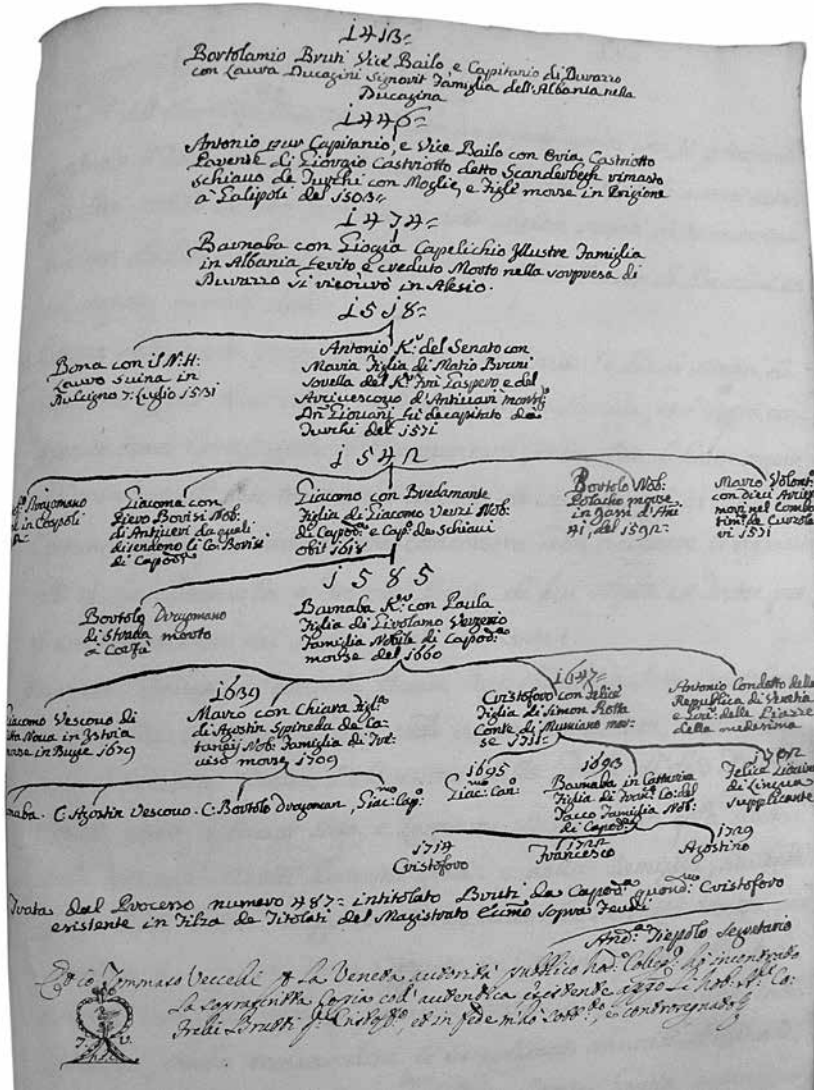 1413=
Bortolamio Bruti Vice Bailo, e Capitanio di Durazzo
con Laura Ducagini Signorit Famiglia dell'Albania nella
Ducagina
1446=
Antonio pur Capitanio, e Vice Bailo con Ovia Castriotto
Parente di Giorgio Castriotto detto Scanderbegh rimasto
schiavo de Turchi con Moglie, e Figli morse in Prigione
à Galipoli del 1503=
1474=
Barnaba con Giogia Capelichio Illustre Famiglia
in Albania ferito e creduto Morto nella sorpresa di
Durazzo si ricovrò in Alesio.
1518=
Bona con il N: H:
Lauro Suina in
Dulcigno 7: Luglio 1531
Antonio K.r del Senato con
Maria Figlia di Matio Bruni
Sorella del K.r Frà Gaspero e del
Arcivescovo d'Antivari
Giovañi fù decapitato da
Turchi del 1571
1542
Dragomano
in Cospoli
Giacoma con
Pievo Borisi Nob:
di Antiveri da quali
disendono li Co: Borisi
di Capod.a
Giacomo con Bredamante
Figlia di Giacomo Verzi Nob:
di Capod.a e Cap.o de Schiavi
obijt 1618
Bortolo Nob:
Polacho morse
in Jassi d'Ane
del 1592=
Marco Volont.o
con dieci Arcie
mori nel Comba
tim.to de Curzola
ri 1571
1585
Bortolo Dragomano
di Strada morto
à Corfù
Barnaba K.r con Paula
Figlia di Girolamo Verzerio
Famiglia Nobile di Capod.a
morse del 1660
Giacomo Vescovo di
Citta Nova in Istria
morse in Bugie 1679
1639
Marco con Chiara Figl.a
di Agostin Spineda de Ca-
tanei Nob: Famiglia di Tre-
viso morse 1709
1647=
Cristoforo con Felice
Figlia di Simon Rotta
Conte di Momiano mor-
se 1711=
Antonio Condotto della
Republica di Venetia
e Gov: delle Piazze
della medesima
Barnaba. C: Agostin Vescovo. C: Bortolo Dragoman, Giac: Cap:
1695
Giac: Can:
1693
Barnaba in Cattarina
Figlia di Fran: Co: del
Tacco Famiglia Nob:
di Capod.a
1702
Felice Giovine
di Lingua
supplicante
1714
Cristoforo
1722
Francesco
1729
Agostino
Trata dal Processo numero 487= intitolato Bruti da Capod.a quond: Cristoforo
existente in Filza de Titolati del Magistrato Eccmo sopra Feudi
And.a Tiepolo Segretario
Et io Tommaso Vecelli La Veneta autorità publico Nod.o Colleg.o hò incontrato
la soprascritta Copia coll'autentica esistente Nob: Sig.ri Co:
Frelli Brutti q.m Cristof.o, et in fede mi sono sott.o, e controsegnato
T. V.